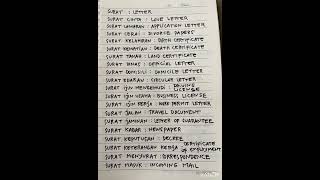 SURAT : LETTER
SURAT CINTA : LOVE LETTER
SURAT LAMARAN : APPLICATION LETTER
SURAT CERAI : DIVORCE PAPERS
SURAT KELAHIRAN : DEATH CERTIFICATE
SURAT KEMATIAN : DEATH CERTIFICATE
SURAT TANAH : LAND CERTIFICATE
SURAT DINAS : OFFICIAL LETTER
SURAT DOMISILI : DOMICILE LETTER
SURAT EDARAN : CIRCULAR LETTER
SURAT IJIN MENGEMUDI : DRIVING LICENSE
SURAT IJIN USAHA : BUSINESS LICENSE
SURAT IJIN KERJA : WORK PERMIT LETTER
SURAT JALAN : TRAVEL DOCUMENT
SURAT JAMINAN : LETTER OF GUARANTEE
SURAT KABAR : NEWSPAPER
SURAT KEPUTUSAN : DECREE
SURAT KETERANGAN KERJA : CERTIFICATE OF EMPLOYMENT
SURAT MENYURAT : CORRESPONDENCE
SURAT MASUK : INCOMING MAIL